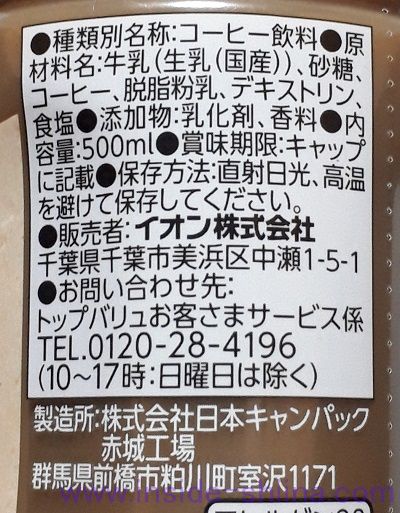 ●種類別名称:コーヒー飲料●原
材料名:牛乳(生乳(国産))、砂糖、
コーヒー、脱脂粉乳、デキストリン、
食塩●添加物:乳化剤、香料●内
容量:500ml●賞味期限:キャップ
に記載●保存方法:直射日光、高温
を避けて保存してください。
●販売者:イオン株式会社
千葉県千葉市美浜区中瀬1-5-1
●お問い合わせ先:
トップバリュお客さまサービス係
TEL.0120-28-4196
(10~17時:日曜日は除く)
製造所:株式会社日本キャンパック
赤城工場
群馬県前橋市粕川町室沢1171